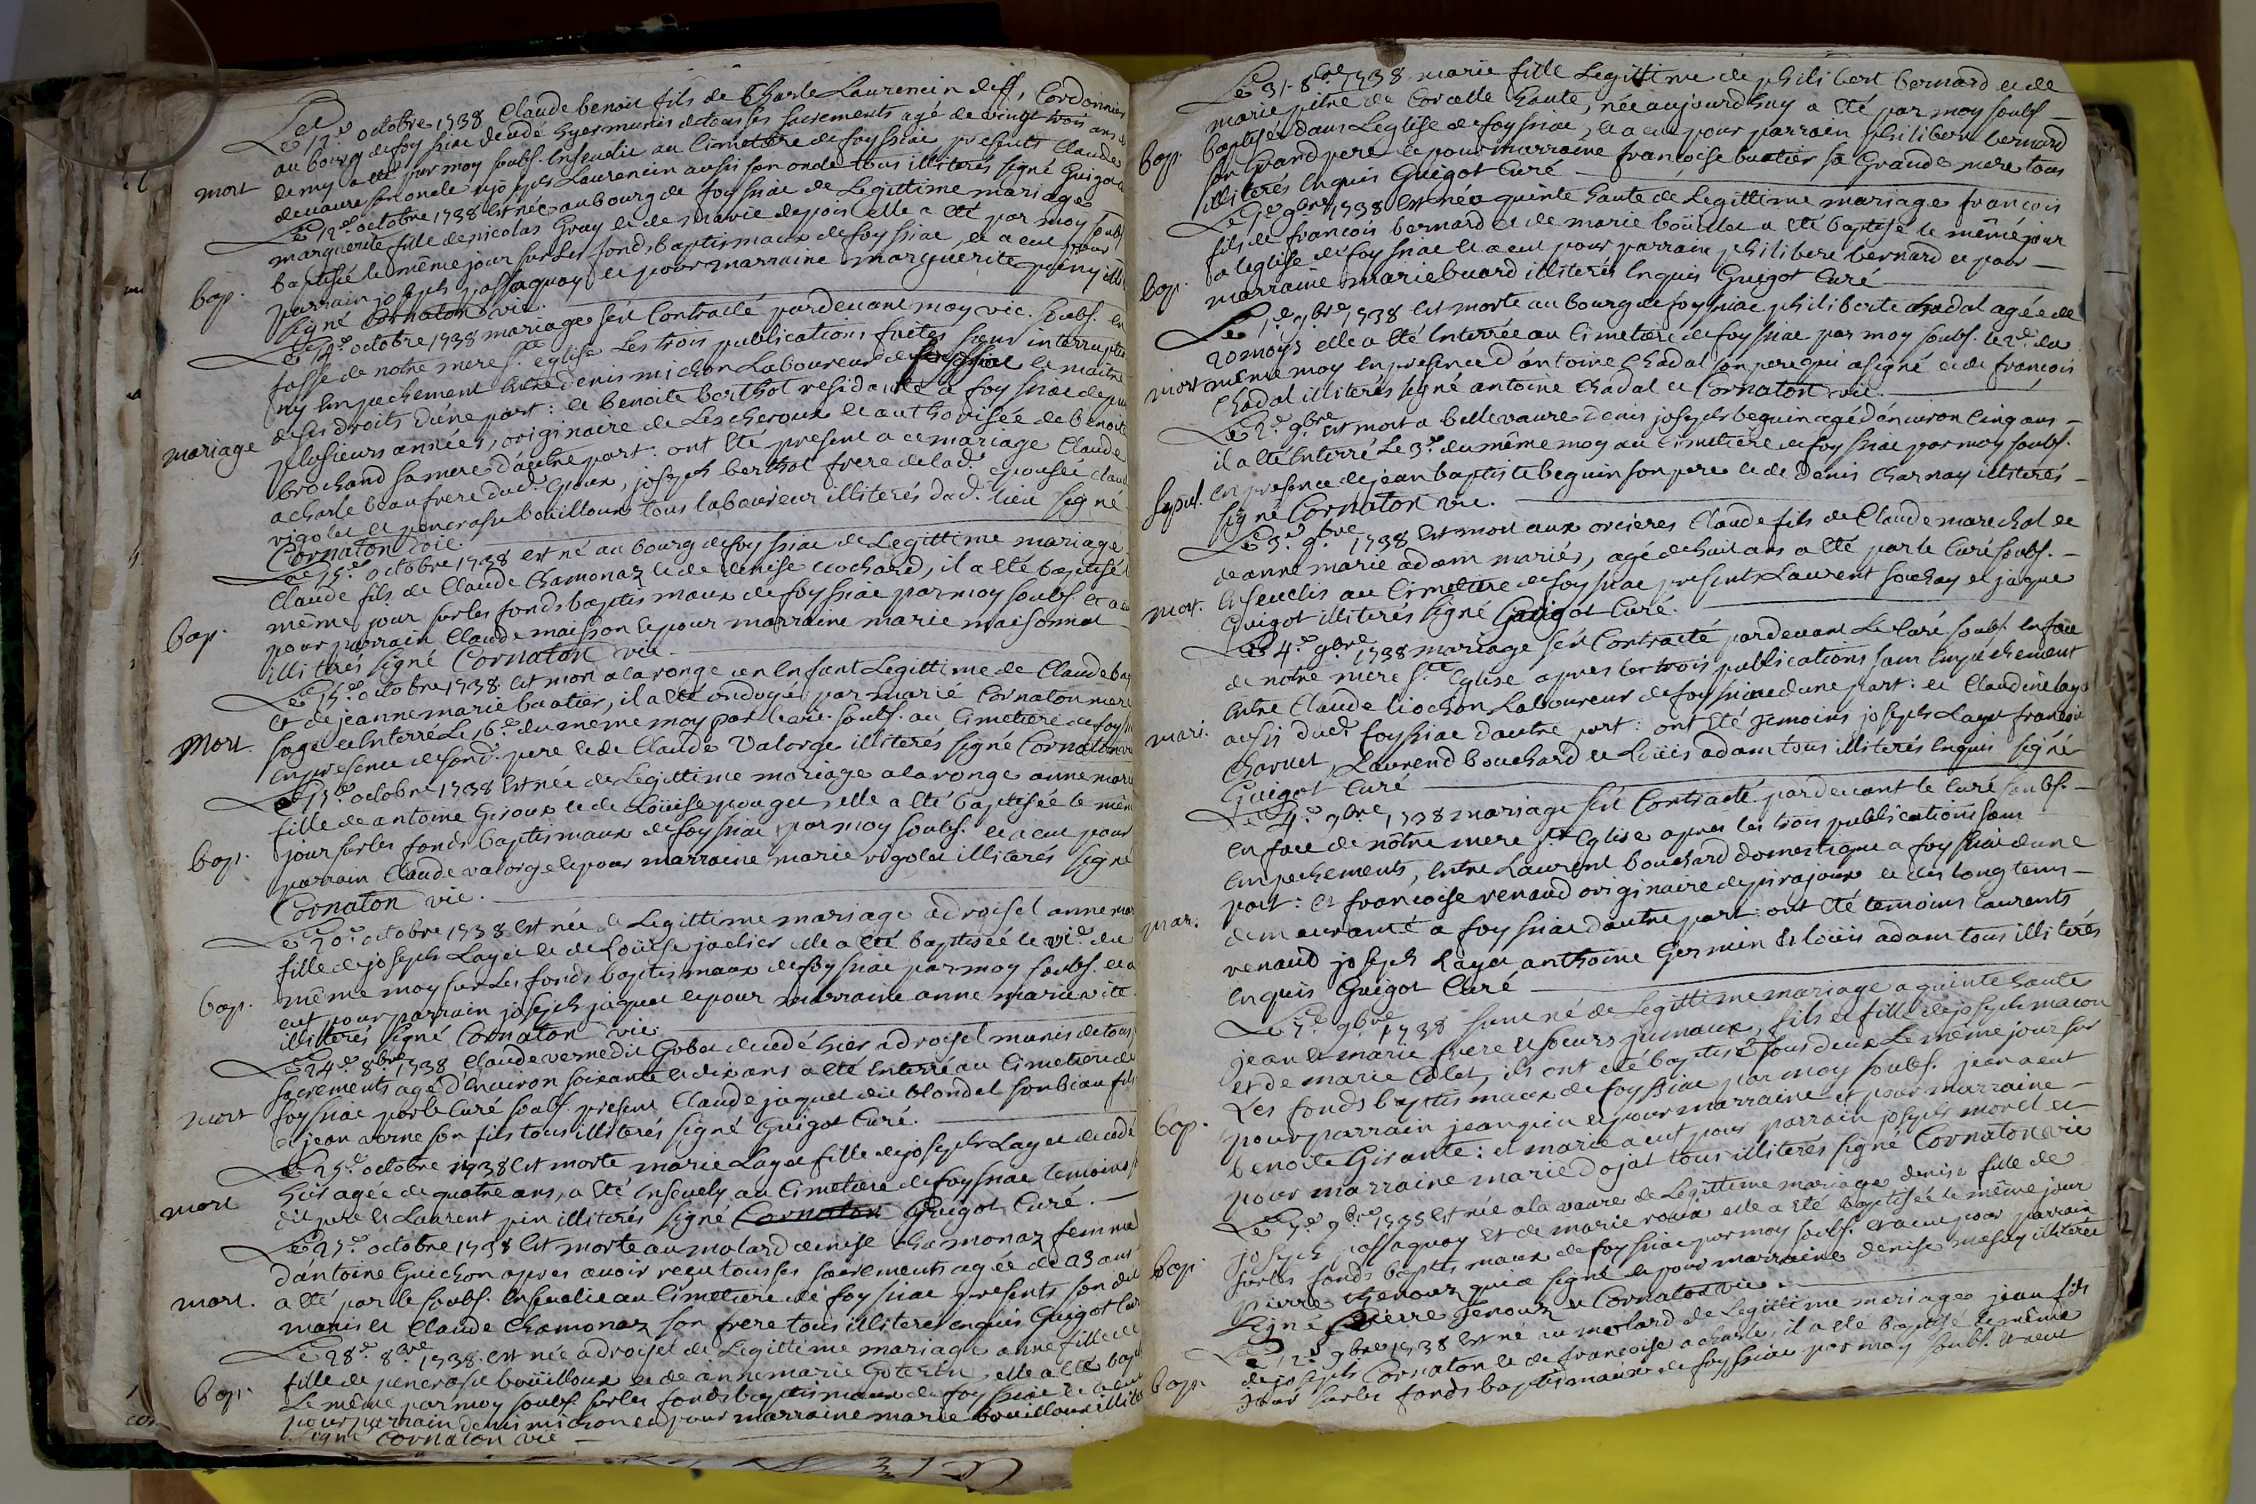 Le 12.e octobre 1738 Claude benoit fils de Charle Laurencin deff. Cordonnier
au bourg de foyssiac decedé hyer munis de tous ses sacrements agé de vingt trois ans et
demy a été par moy soubs. Enseveli au Cimetiere de foyssiac presents Claude
mort
son oncle joseph Laurencin aussi son oncle tous illiterés signé Guigot
Le 12.e octobre 1738 est née au bourg de foyssiac de Legittime mariage
marguerite fille de nicolas Gray et de marie depoisi elle a été par moy soubs
baptisée le même jour sur les fonds baptismaux de foyssiac, et a eut pour
bap.
parrain joseph passaquay et pour marraine marguerite
signé Cornaton vic.
Le 14.e octobre 1738 mariage s'est Contracté pardevant moy vic. soubs. en
fasse de notre mere s.te eglise Les trois publications faites sans interruption
ny Empechement Entre denis michon Laboureur de foyssiac et maitre
de ses droits d'une part: et benoite berthot residante a foyssiac depuis
plusieurs années, originaire de Lescheroux et authorisée de benoite
mariage
brochand sa mere d'autre part: ont été present a ce mariage Claude
acharle beaufrere dud. Epoux, joseph berthot frere de lad.e epousée claude
rigolet et pancrasse bouilloux tous laboureur illiterés dud. lieu signé
Cornaton vic.
Le 15.e octobre 1738 est né au bourg de foyssiac de Legittime mariage
Claude fils de Claude Chamonaz et de denise cochard, il a été baptisé
même jour sur les fonds baptismaux de foyssiac par moy soubs. et a eu
bap.
pour parrain Claude maisson et pour marraine marie maisonnat
illiterés signé Cornaton vic.
Le 15.e octobre 1738 est mort a la ronge un Enfant Legittime de Claude
et de jeanne marie buatier, il a été ondoyé par marie Cornaton mere
sage et Enterré Le 16.e du meme moy par le cure. soubs. au Cimetiere de foyssiac
Mort.
en presence de sond. pere et de Claude Valorge illiterés signé Cornaton vic
Le 15.e octobre 1738 est née de Legittime mariage a la ronge anne marie
fille de antoine Giroux et de Loüise pouget, elle a été baptisée le même
jour sur les fonds baptismaux de foyssiac par moy soubs. et a eut pour
bap.
parrain Claude valorge et pour marraine marie rigolet illiterés signé
Cornaton vic.
Le 20.e octobre 1738 est née de Legittime mariage a droisel anne marie
fille de joseph Layet et de Loüise jaclier elle a été baptisée le vi.e du
même moy sur Les fonds baptismaux de foyssiac par moy soubs. et a
bap.
eut pour parrain joseph jaquet et pour marraine anne marie vite
illiterés signé Cornaton vic.
Le 24.e 8.bre 1738 Claude verne dit Gobet decedé hier a droisel munis de tous
sacrements agé d'Environ soixante et dix ans a été Enterré au Cimetiere de
mort
foyssiac par le Curé soubs. present Claude jaquet dit blondel son beau fils
et jean verne son fils tous illiterés signé Guigot Curé.
Le 25.e octobre 1738 est morte marie Layet fille de joseph Layet decedé
mort
hier agée de quatre ans, a été Ensevely au Cimetiere de foyssiac temoins
dit pere et Laurent pin illiterés signé Cornaton Guigot Curé.
Le 27.e octobre 1738 est morte au molard denise chamonaz femme
d'antoine Guichon apres avoir reçu tous ses sacrements agée de 23 ans
mort.
a été par le soubs. Ensevelie au Cimetiere de foyssiac presents son dit
maris et Claude Chamonaz son frere tous illiteres enquis Guigot Curé
Le 28.e 8.bre 1738. est née a droisel de Legittime mariage anne fille de
fille de pancrasse bouilloux et de anne marie , elle a été bap
bap.
Le même par moy soubs. sur les fonds baptismaux de foyssiac et a eut
pour parrain denis michon et pour marraine marie bouilloux illiterés
signé Cornaton vic
Le 31. 8.bre 1738 marie fille Legittime de philibert bernard et de
marie pitre de Corcelle haute, née aujourdhuy a été par moy soubs
bap.
baptisée dans Leglise de foyssiac, et a eut pour parrain philibert bernard
son Grand pere et pour marraine françoise buatier sa Grande mere tous
illiterés Enquis Guigot Curé
Le 1.e 9.bre 1738 est né a quinte haute de Legittime mariage francois
fils de francois bernard et de marie boüillet a été baptisé le même jour
bap.
a leglise de foyssiac et a eut pour parrain philibert bernard et pour
marraine marie buard illiterés Enquis Guigot Curé
Le 1.e 9.bre 1738 est morte au bourg de foyssiac philiberte chadal agée de
20 moys elle a été Enterrée au Cimetiere de foyssiac par moy soubs. le 2.e du
mort
même moy En presence d'antoine Chadal son pere qui a signé et de françois
Chadal illiterés signé antoine chadal et Cornaton vic.
Le 2.e 9.bre est mort a bellevaure denis joseph beguin agé d'environ Cinq ans
il a été Enterré Le 3.e du même moy au Cimetiere de foyssiac par moy soubs.
Sepul.
En presence de jean baptiste beguin son pere et de denis Charnay illiterés
signé Cornaton vic.
Le 3.e 9.bre 1738 est mort aux orcieres Claude fils de Claude marechal et
de anne marie adam mariés, agé de huit ans a été par le Curé soubs.
mort.
Ensevelis au Cimetiere de foyssiac presents Laurent sochay et jaque
Guigot illiterés signé Guigot Curé.
Le 4.e 9.bre 1738 mariage s'est Contracté pardevant Le Curé soubs. En face
de notre mere s.te Eglise apres les trois publications sans Empechement
Entre Claude liochon Laboureur de foyssiac d'une part: et Claudine laye
mari.
aussi dud. foyssiac d'autre part: ont été temoins joseph Layet francois
charvet, Laurend bouchard et Loüis adam tous illiterés Enquis signé
Guigot Curé
Le 4.e 9.bre 1738 mariage s'est Contracté pardevant le Curé soubs.
en face de nôtre mere s.te Eglise apres les trois publications sans
Empechements, Entre Laurent bouchard domestique a foyssiac d'une
part: et francoise renaud originaire de pirajoux et dès longtems
mar.
demeurante a foyssiac d'autre part: ont été temoins laurents
renaud joseph Layet anthoine Germin et loüis adam tous illiterés
Enquis Guigot Curé
Le 7.e 9.bre 1738 sont né de Legittime mariage a quinte haute
jean et marie frere et soeurs jumaux, fils et fille de joseph macon
et de marie Colet, ils ont été baptisé tous deux Le même jour sur
Les fonds baptismaux de foyssiac par moy soubs. jean a eut
bap.
pour parrain jean pin et pour marraine et pour marraine
benoite Girante: et marie a eut pour parrain joseph morel et
pour marraine marie Dojat tous illiterés signé Cornaton vic
Le 7.e 9.bre 1738 est née a la vaure de Legittime mariage denise fille de
joseph passaquay et de marie roux elle a été baptisée le même jour
bap.
sur les fonds baptismaux de foyssiac par moy soubs. et a eut pour parrain
pierre thenoux qui a signé et pour marraine denise illiterée
signé pierre Tenoux et Cornaton vic.
Le 12.e 9.bre 1738 est né au molard de Legittime mariage jean fils
de joseph Cornaton et de francoise acharle, il a été baptisé le même
bap.
jour sur les fonds baptismaux de foyssiac par moy soubs. et a eut